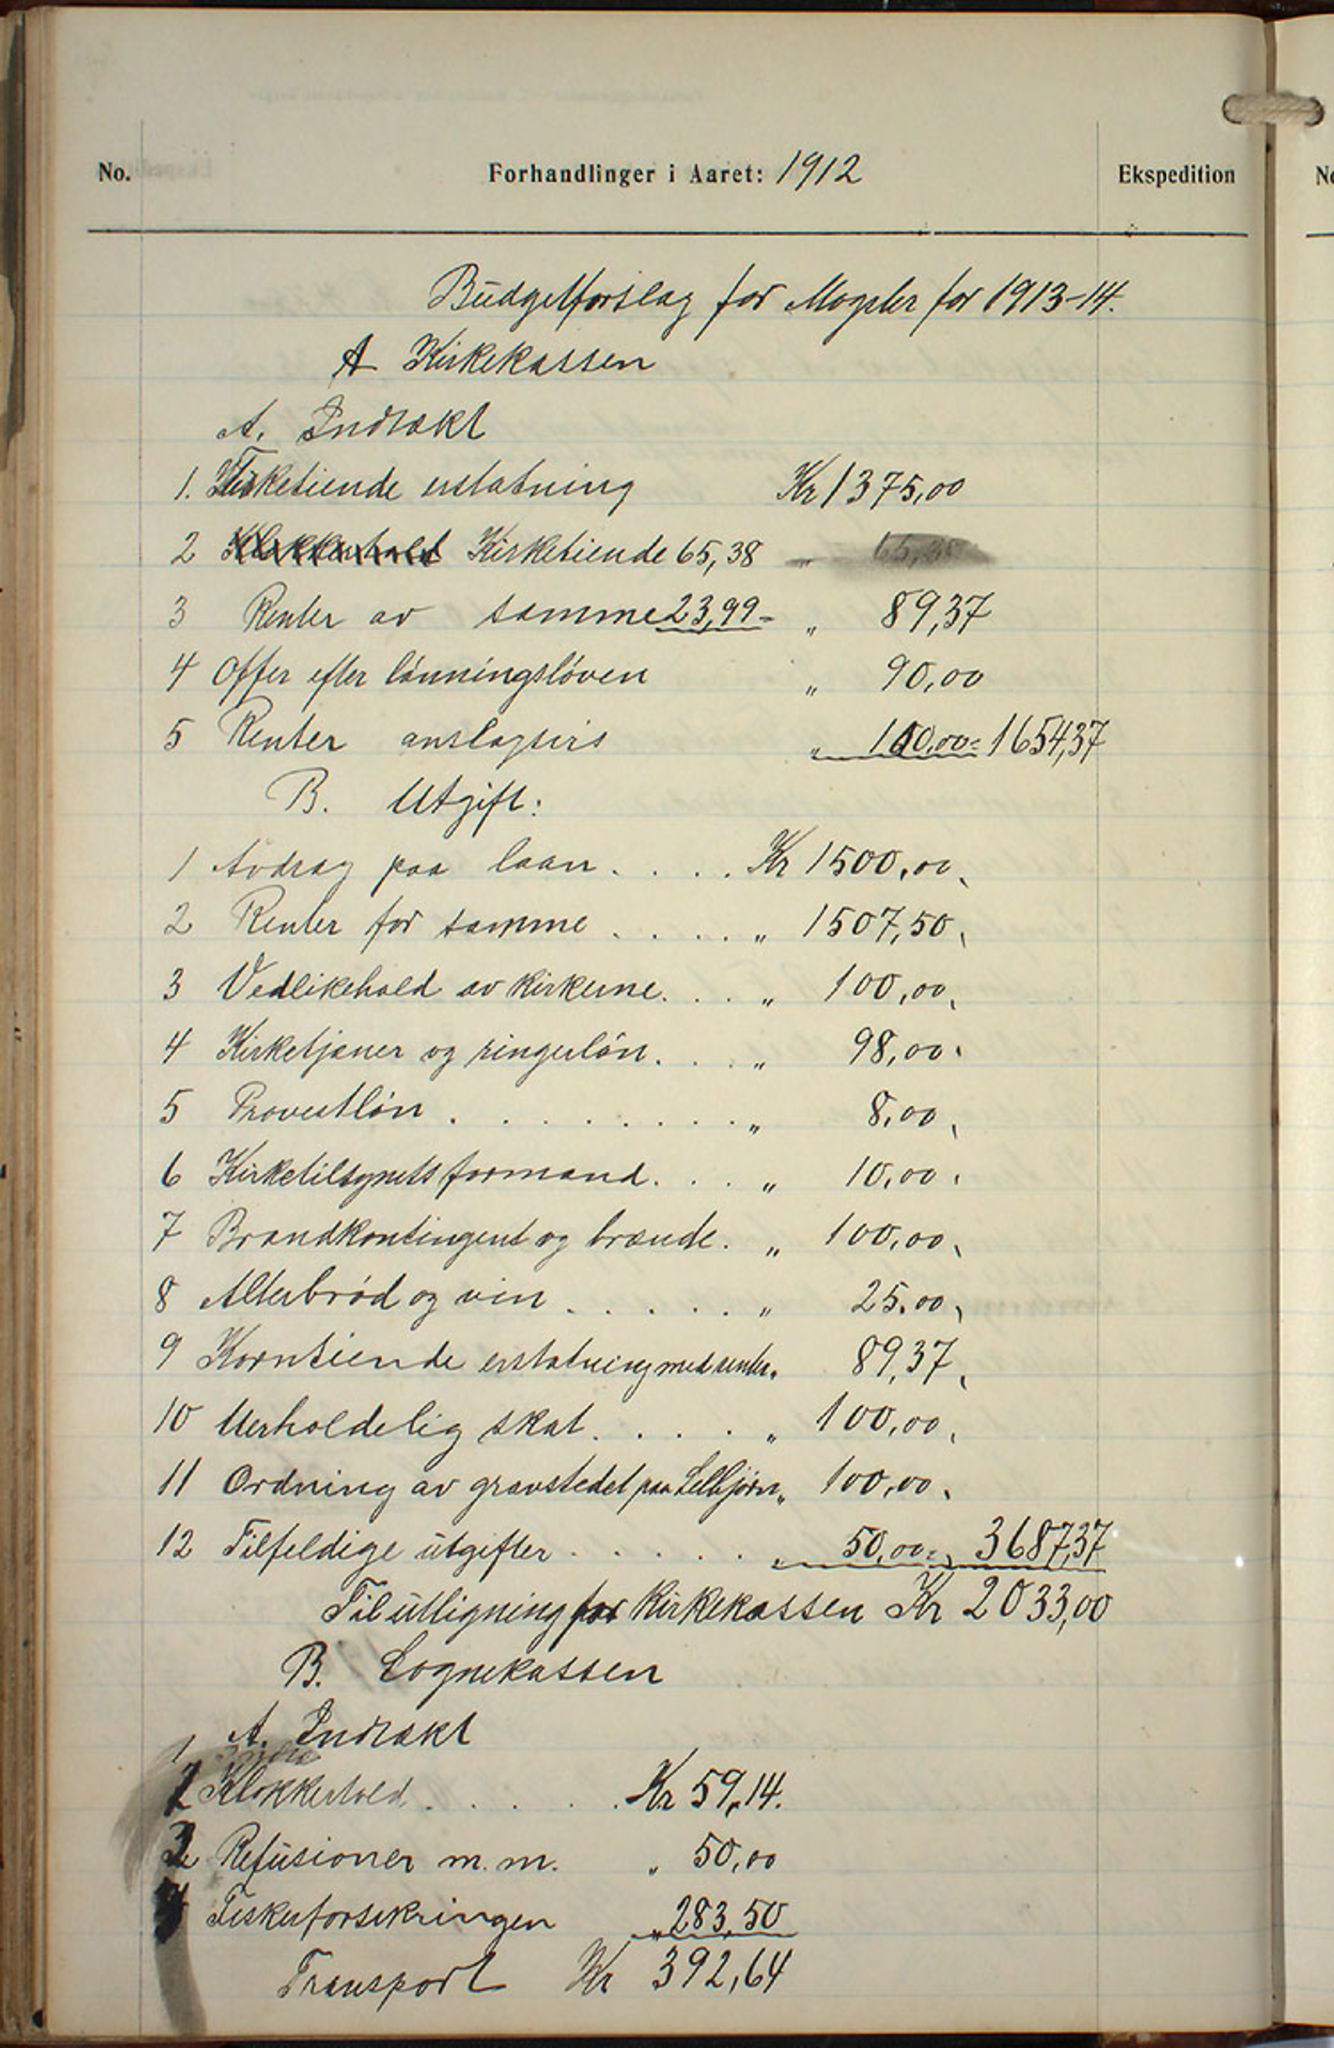 No. Forhandlinger i Aaret: 1912 Ekspedition
Budgetforslag for Møgster for 1913-14.
A Kirkekassen
A. Indtækt
1. Fisketiende erstatning Kr 1375,00
2 Klokkerhold Kirketiende 65,38 " 65,38
3 Renter av samme 23,99 = " 89,37
4 Offer efter lønningsloven " 90,00
5 Renter anslagsvis " 100,00 = 1654,37
B. Utgift:
1 Avdrag paa laan . . . . Kr 1500,00
2 Renter for samme . . . . " 1507,50
3 Vedlikehold av kirkerne . . . " 100,00
4 Kirketjener og ringerløn . . . " 98,00
5 Provestløn . . . . . . . . " 8,00
6 Kirketilsynets formand . . . " 10,00
7 Brandkontingent og brænde . " 100,00
8 Alterbrød og vin . . . . . " 25,00
9 Korntiende erstatning med renter " 89,37
10 Uerholdelig skat . . . . " 100,00
11 Ordning av gravstedet paa Selbjørn " 100,00
12 Tilfeldige utgifter . . . . . " 50,00 = 3687,37
Til utligning for Kirkekassen Kr 2033,00
B. Sognekassen
A. Indtækt
1
2 Klokkerhold . . . . . Kr 59,14.
3 Refusioner m.m. " 50,00
4 Fiskerforsikringen " 283,50
Transport Kr 392,64